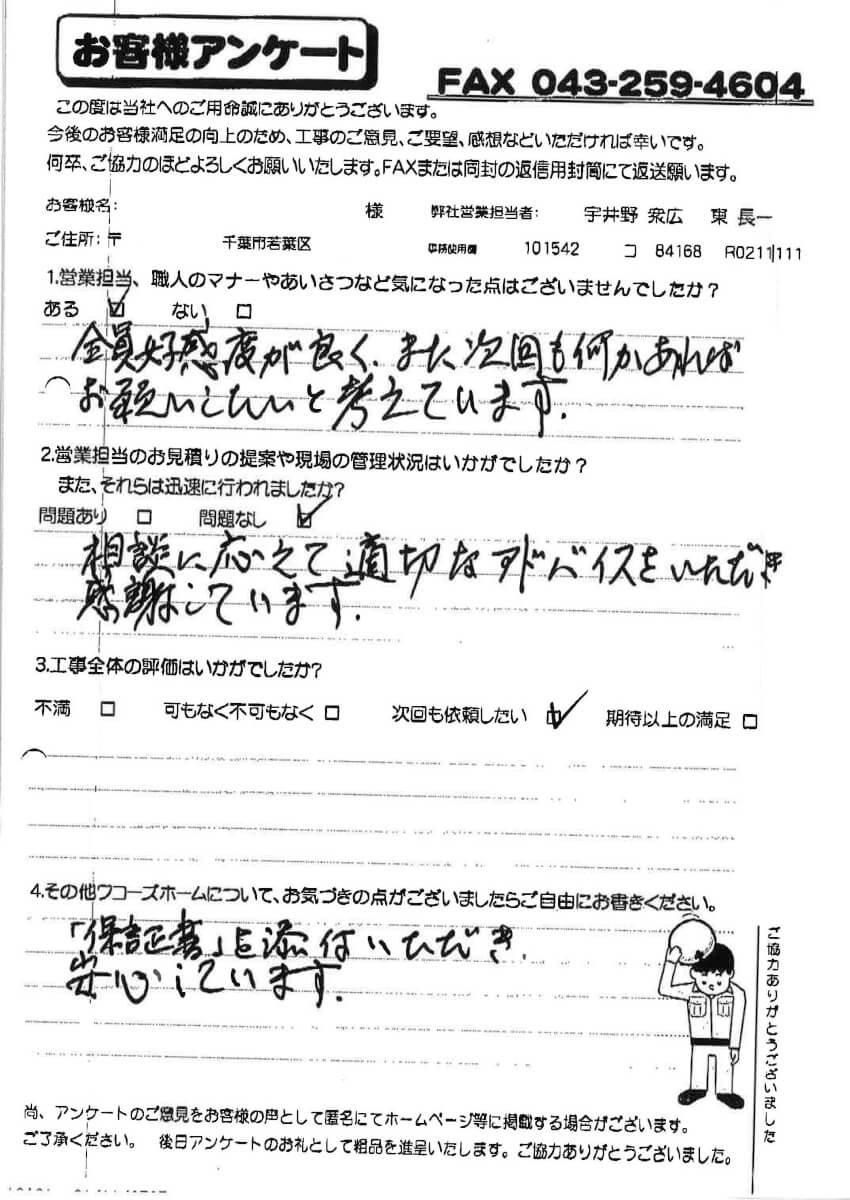 お客様アンケート
FAX 043-259-4604
この度は当社へのご用命誠にありがとうございます。
今後のお客様満足の向上のため、工事のご意見、ご要望、感想などいただければ幸いです。
何卒、ご協力のほどよろしくお願いいたします。FAXまたは同封の返信用封筒にて返送願います。
お客様名: 様 弊社営業担当者: 宇井野 衆広 東 長一
ご住所:〒 千葉市若葉区 事務使用欄 101542 コ 84168 R0211111
1.営業担当、職人のマナーやあいさつなど気になった点はございませんでしたか?
ある ☑ ない □
全員好感度が良く、また次回も何かあれば
お願いしたいと考えています.
2.営業担当のお見積りの提案や現場の管理状況はいかがでしたか?
また、それらは迅速に行われましたか?
問題あり □ 問題なし ☑
相談に応えて適切なアドバイスをいただき
感謝しています.
3.工事全体の評価はいかがでしたか?
不満 □ 可もなく不可もなく □ 次回も依頼したい ☑ 期待以上の満足 □
4.その他ワコーズホームについて、お気づきの点がございましたらご自由にお書きください。
「保証書」も添付いただき
安心しています.
ご協力ありがとうございました
尚、アンケートのご意見をお客様の声として匿名にてホームページ等に掲載する場合がございます。
ご了承ください。 後日アンケートのお礼として粗品を進呈いたします。ご協力ありがとうございました。